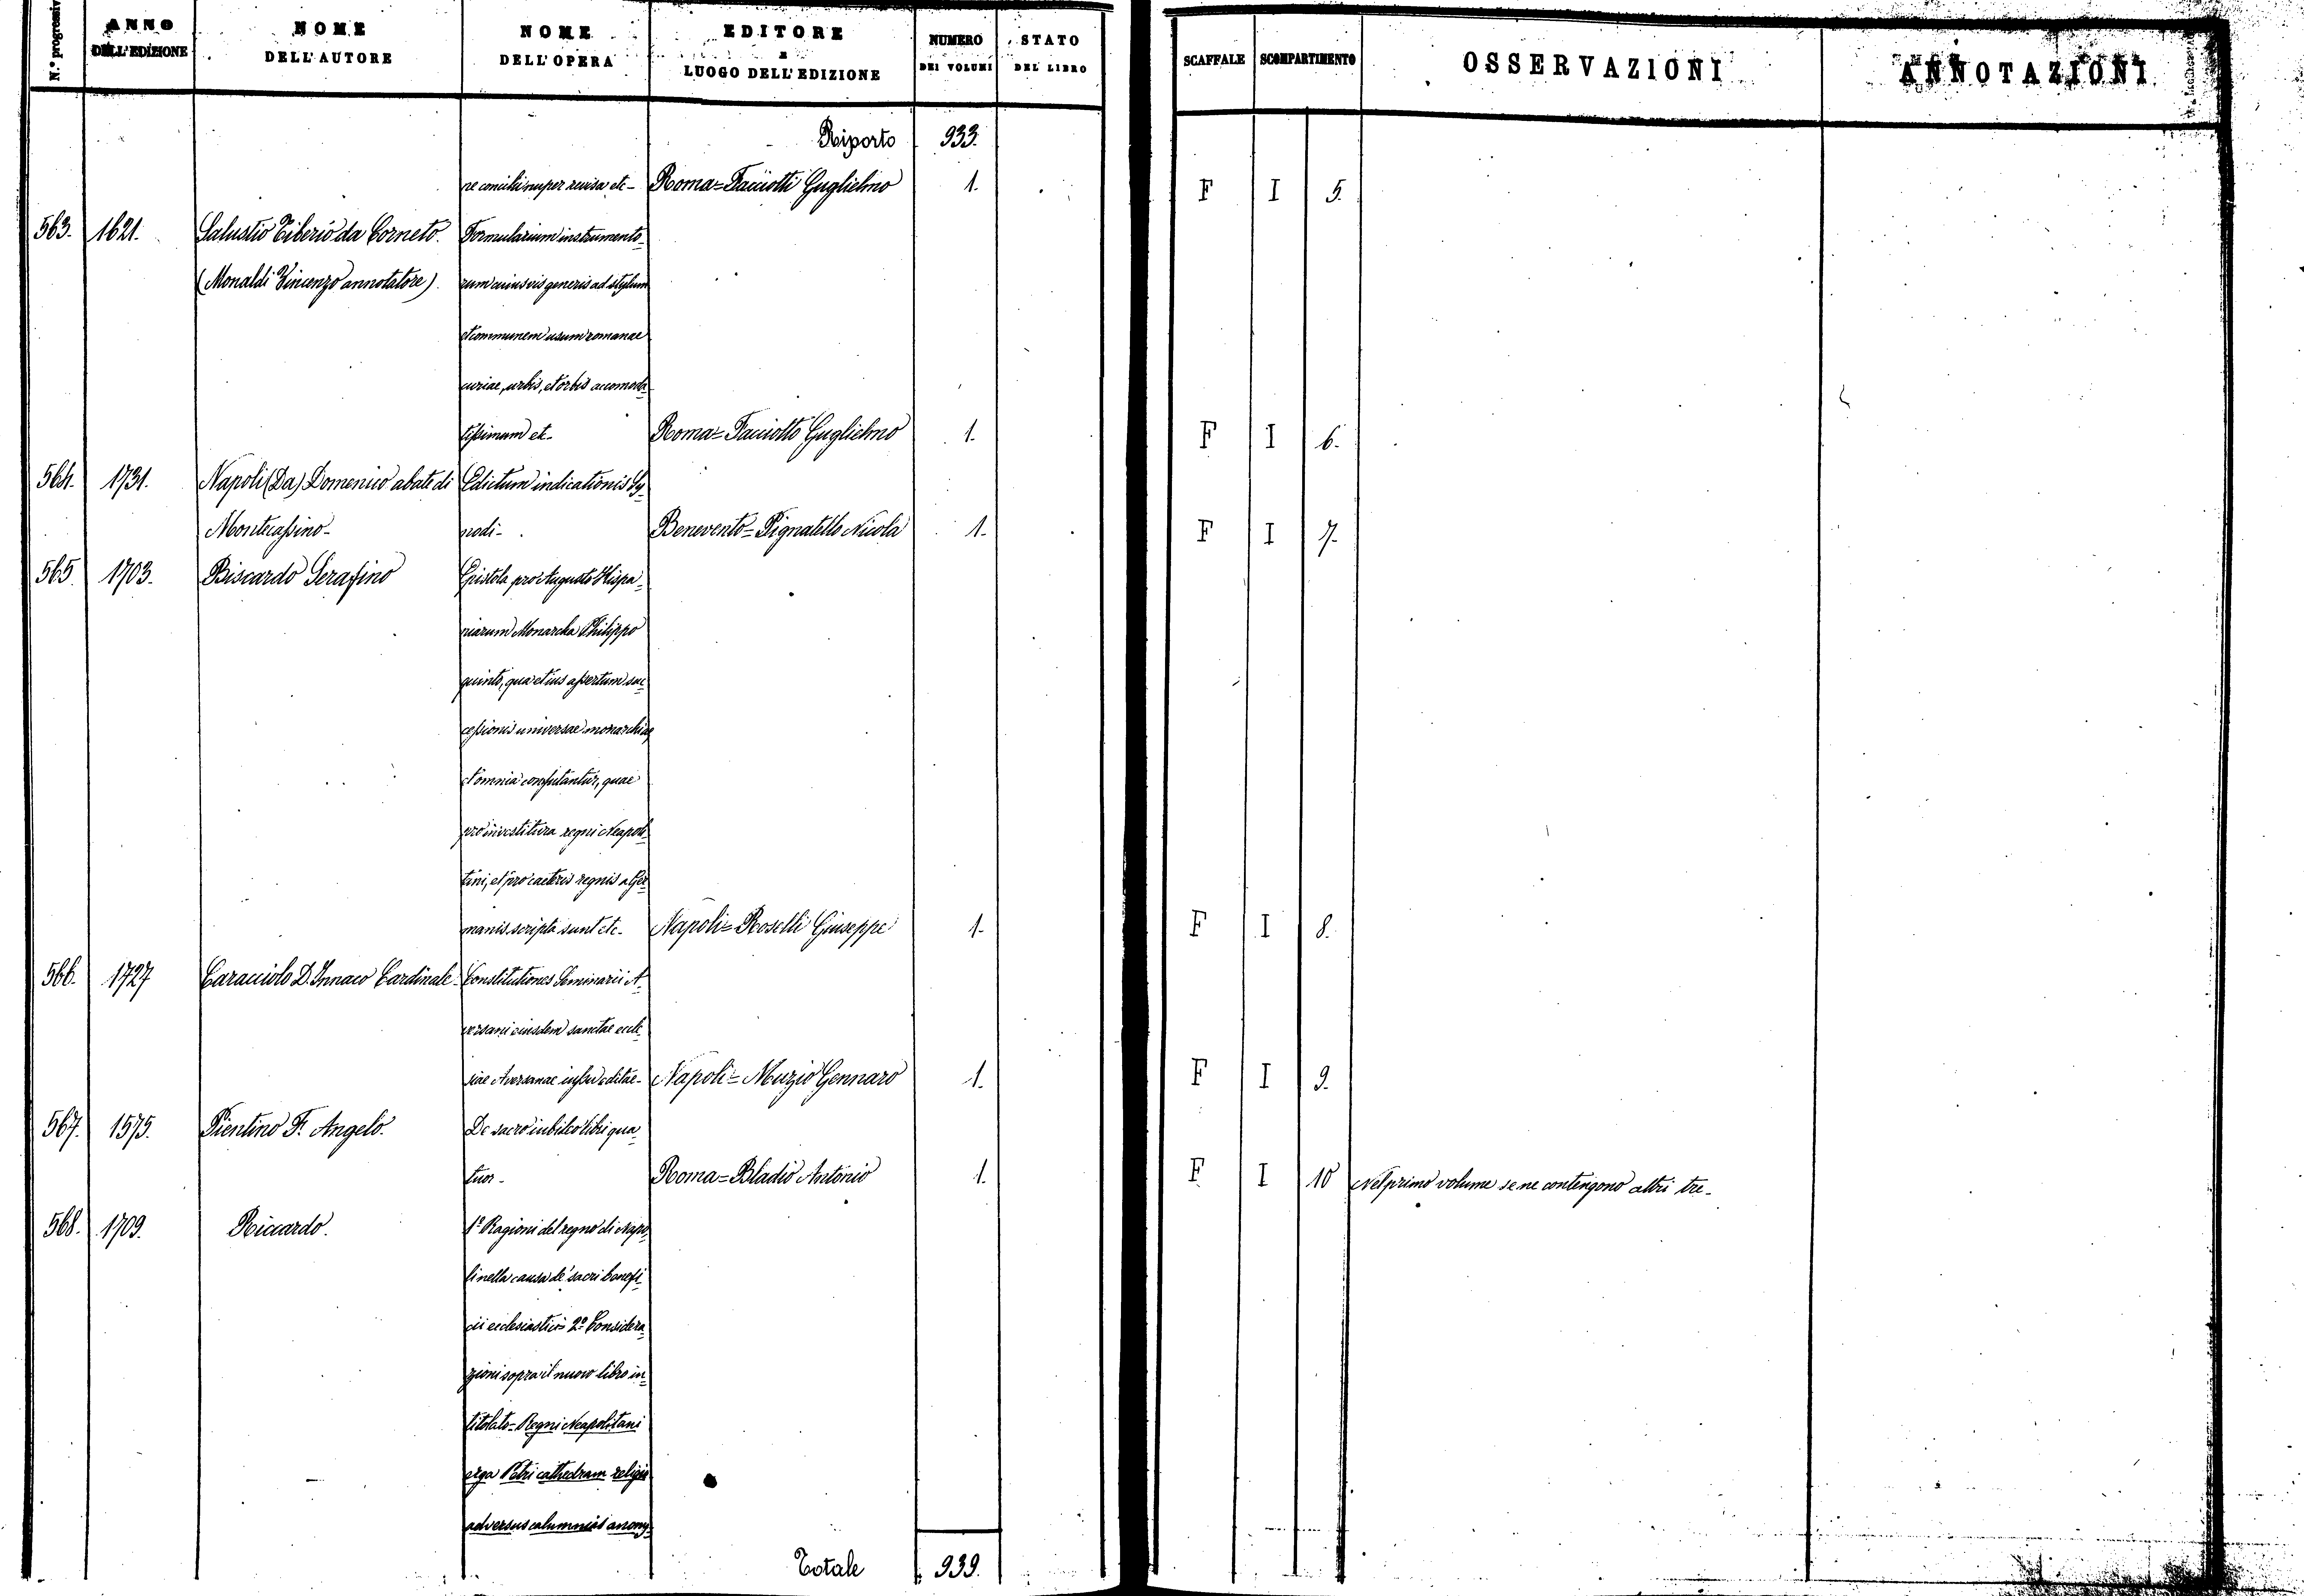 N.° progressiv
ANNO DELL'EDIZIONE
NOME DELL'AUTORE
NOME DELL'OPERA
EDITORE E LUOGO DELL'EDIZIONE
NUMERO DEI VOLUMI
STATO DEL LIBRO
SCAFFALE
SCOMPARTIMENTO
OSSERVAZIONI
ANNOTAZIONI
Riporto 933.
re concilii nuper etc- Roma=Facciotti Guglielmo 1. F I 5.
563. 1621. Salustio Tiberio da Corneto. Formularium instrumento-
(Monaldi Vincenzo annotatore). rum cuiusvis generis ad stylum
et communem usum romanae
curiae, urbis, et orbis accomoda-
tissimum et- Roma=Facciotto Guglielmo 1. F I 6.
564. 1731. Napoli (Da) Domenico abate di Edictum indicationis Sy-
Montecassino- nodi- Benevento=Pignatello Nicola 1. F I 7.
565. 1703. Biscardo Serafino Epistola pro Augusto Hispa-
niarum Monarcha Philippo
quinto, qua et ius assertum suc-
cessionis universae monarchiae
et omnia confutantur, quae
pro investitura regni Neapoli-
tini, et pro caeteris regnis a Ger-
manis scripta sunt etc- Napoli=Roselli Giuseppe 1. F I 8.
566. 1727 Caracciolo D. Innaco Cardinale- Constitutiones Seminarii A-
versani eiusdem sanctae eccle-
siae Aversanae iussu editae- Napoli=Muzio Gennaro 1. F I 9.
567. 1575. Pientino F. Angelo. De sacro iubileo libri qua-
tuor- Roma=Bladio Antonio 1. F I 10 Nel primo volume se ne contengono altri tre-
568. 1709. Riccardo. 1° Ragioni del regno di Napo-
li nella causa de' sacri benefi-
cii ecclesiastici= 2° Considera-
zioni sopra il nuovo libro in-
titolato=Regni Neapolitani
erga Petri cathedram religio
adversus calumnias anony-
Totale 939.